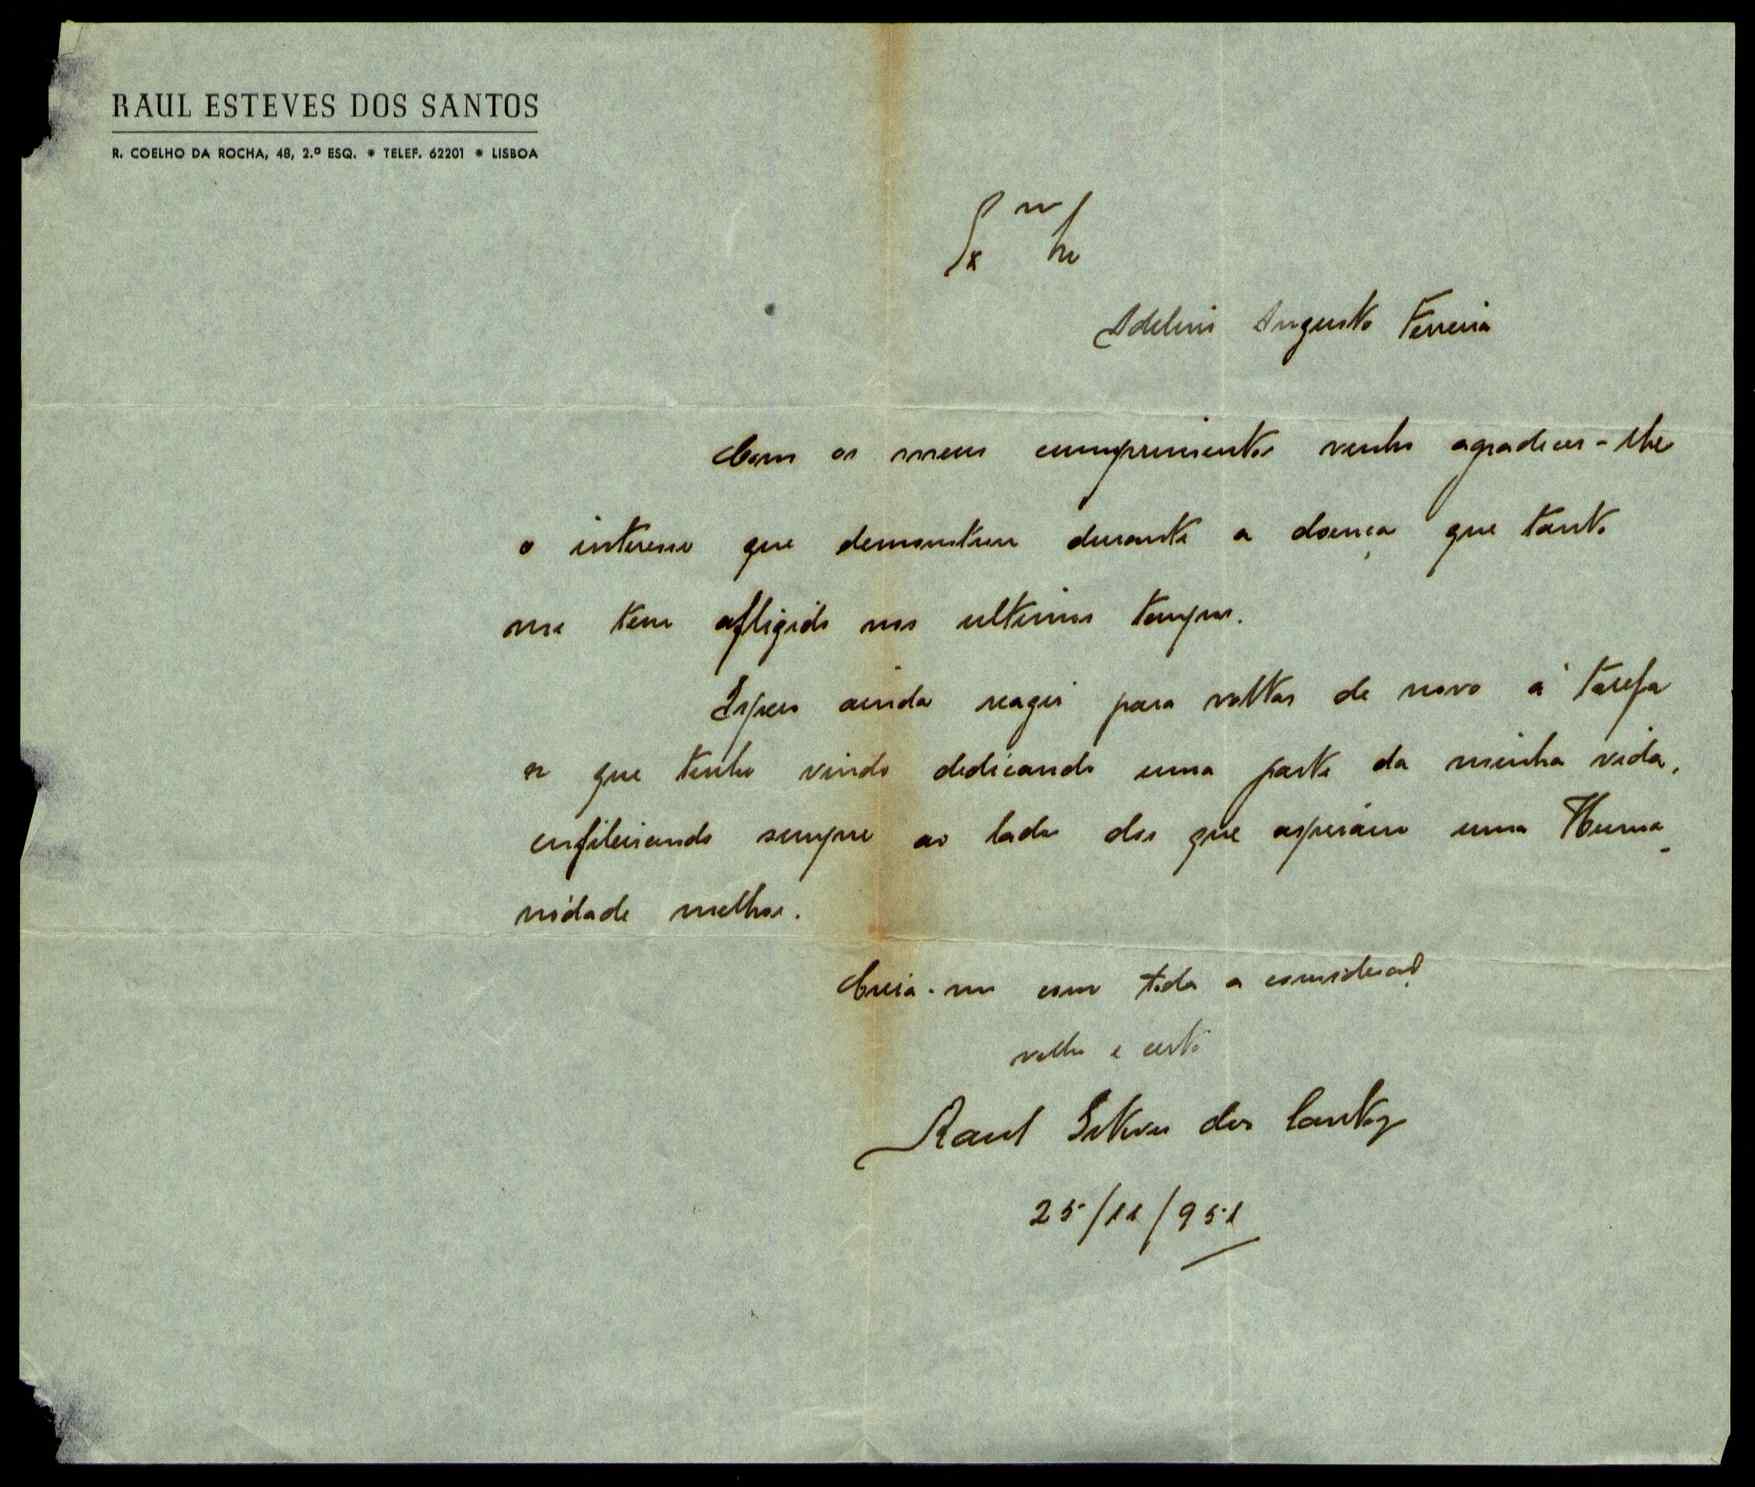 RAUL ESTEVES DOS SANTOS
R. COELHO DA ROCHA, 48, 2.º ESQ. * TELEF. 62201 * LISBOA
Exmo Sr
Adelino Augusto Ferreira
Com os meus cumprimentos venho agradecer-lhe
o interesse que demonstrou durante a doença que tanto
me tem afligido nos ultimos tempos.
Espero ainda reagir para voltar de novo à tarefa
a que tenho vindo dedicando uma parte da minha vida,
enfileirando sempre ao lado dos que aspiram uma Huma-
nidade melhor.
Creia-me com toda a consideração
velho e certo
Raul Esteves dos Santos
25/11/951